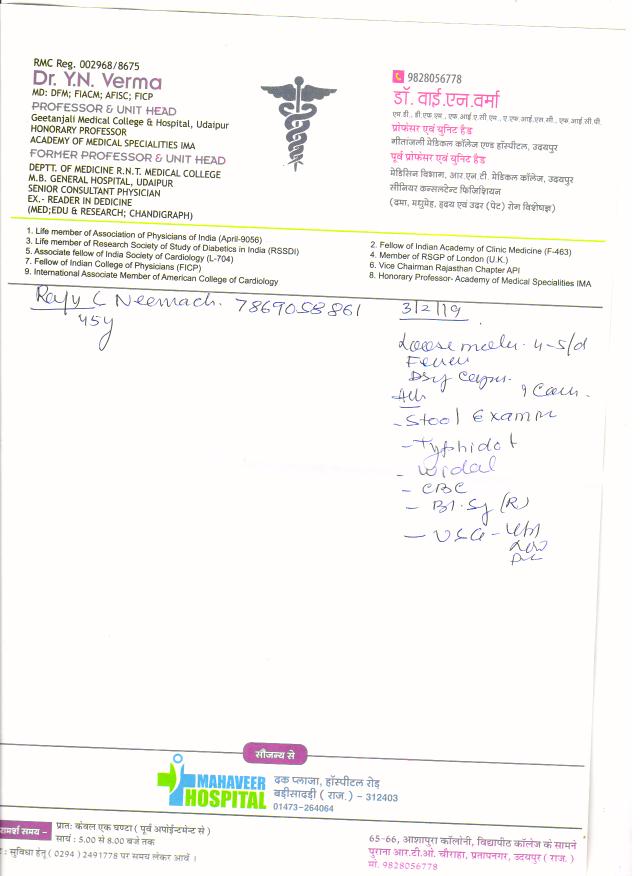 RMC Reg. 002968/8675
Dr. Y.N. Verma
MD: DFM; FIACM; AFISC; FICP
PROFESSOR & UNIT HEAD
Geetanjali Medical College & Hospital, Udaipur
HONORARY PROFESSOR
ACADEMY OF MEDICAL SPECIALITIES IMA
FORMER PROFESSOR & UNIT HEAD
DEPTT. OF MEDICINE R.N.T. MEDICAL COLLEGE
M.B. GENERAL HOSPITAL, UDAIPUR
SENIOR CONSULTANT PHYSICIAN
EX.- READER IN DEDICINE
(MED;EDU & RESEARCH; CHANDIGRAPH)
9828056778
डॉ. वाई.एन.वर्मा
एम.डी., डी.एफ.एम., एफ.आई.ए.सी.एम., ए.एफ.आई.एस.सी., एफ.आई.सी.पी.
प्रोफेसर एवं युनिट हैड
गीतांजली मेडिकल कॉलेज एण्ड हॉस्पीटल, उदयपुर
पूर्व प्रोफेसर एवं युनिट हैड
मेडिसिन विभाग, आर.एन टी. मेडिकल कॉलेज, उदयपुर
सीनियर कन्सलटेन्ट फिजिशियन
(दमा, मधुमेह, हृदय एवं उदर (पेट) रोग विशेषज्ञ)
1. Life member of Association of Physicians of India (April-9056)
3. Life member of Research Society of Study of Diabetics in India (RSSDI)
5. Associate fellow of India Society of Cardiology (L-704)
7. Fellow of Indian College of Physicians (FICP)
9. International Associate Member of American College of Cardiology
2. Fellow of Indian Academy of Clinic Medicine (F-463)
4. Member of RSGP of London (U.K.)
6. Vice Chairman Rajasthan Chapter API
8. Honorary Professor- Academy of Medical Specialities IMA
Neemach. 7869058861
45y
3/2/19
Loose 4-5/d
Fever
Dry
- Stool Exam
- Typhidot
- Widal
- CBC
- Bl. Sg (R)
- USG -
सौजन्य से
MAHAVEER
HOSPITAL
दक प्लाजा, हॉस्पीटल रोड़
बड़ीसादड़ी ( राज. ) - 312403
01473-264064
रामर्श समय -
प्रातः केवल एक घण्टा ( पूर्व अपोईन्टमेन्ट से )
सायं : 5.00 से 8.00 बजे तक
: सुविधा हेतू ( 0294 ) 2491778 पर समय लेकर आवें ।
65-66, आशापुरा कॉलोनी, विद्यापीठ कॉलेज के सामने
पुराना आर.टी.ओ. चौराहा, प्रतापनगर, उदयपुर ( राज. )
मो. 9828056778